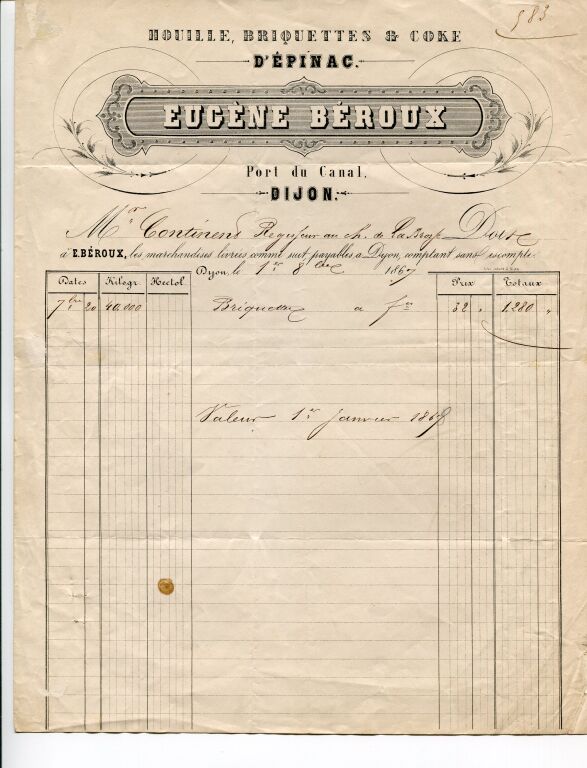 583
HOUILLE, BRIQUETTES & COKE
D'ÉPINAC.
EUGÈNE BÉROUX
Port du Canal,
DIJON.
Mr Continens au ch. de Doit
à E. BÉROUX, les marchandises livrées comme suit, payables à Dijon, comptant sans escompte.
Dijon, le 1er 8bre 1867
Dates Kilogr. Hectol Prix Totaux
7bre 20 40,000 Briquettes a fs 32 " 1,280 "
Valeur 1er Janvier 1868